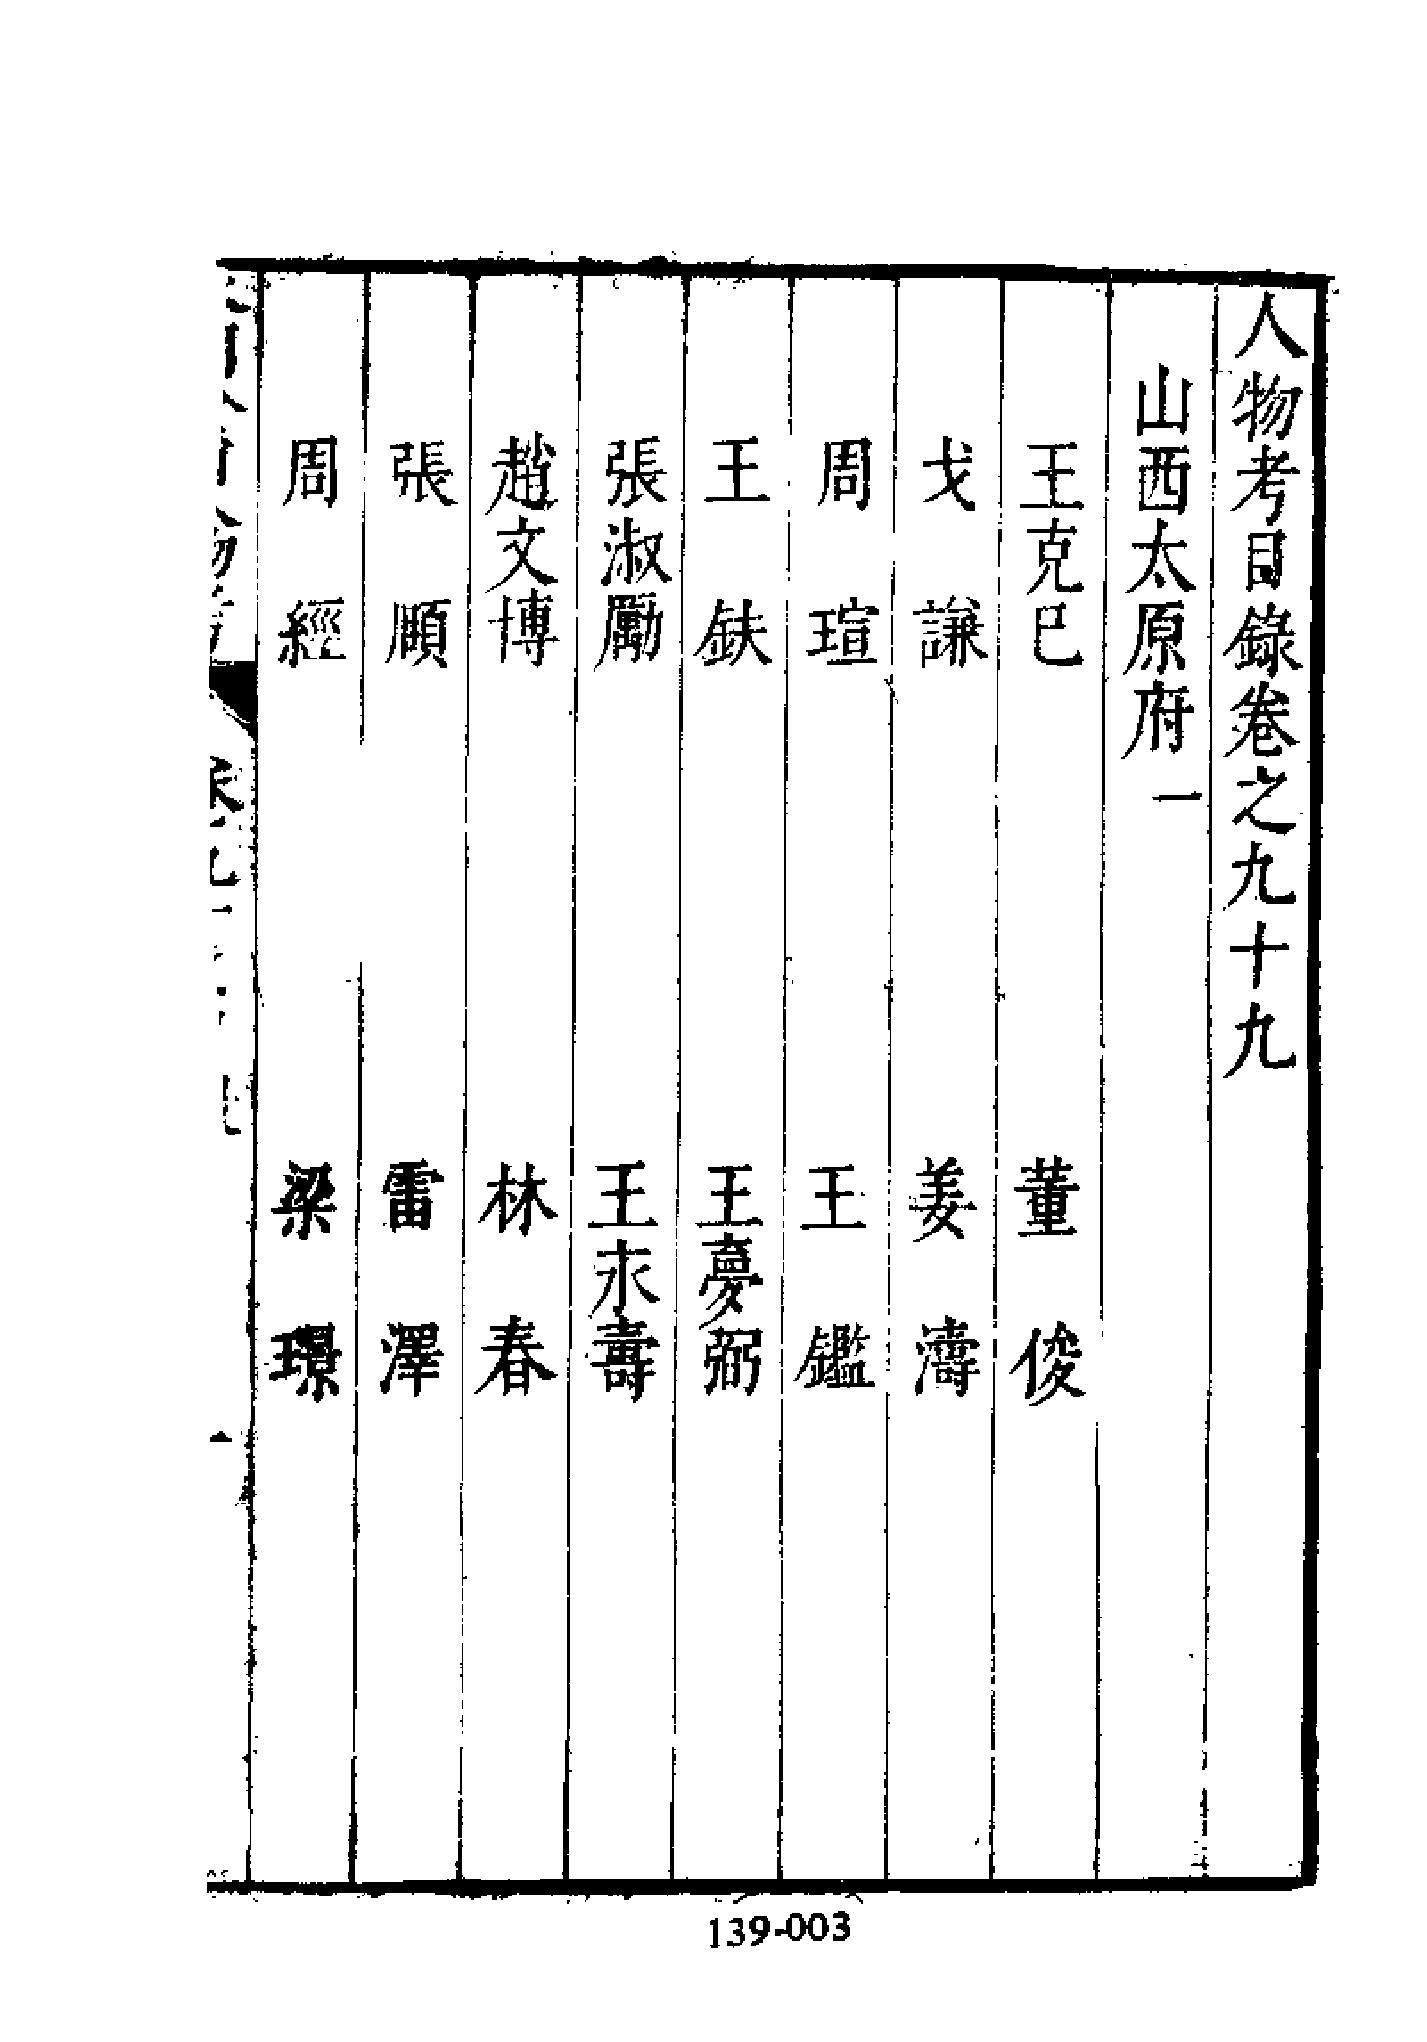 人物考目錄卷之九十九
山西太原府一
王克巳　董俊
戈謙　姜濤
周瑄　王鑑
王鈇　王夢弼
張淑勵　王永壽
趙文博　林春
張頤　雷澤
周經　梁璟
139-003